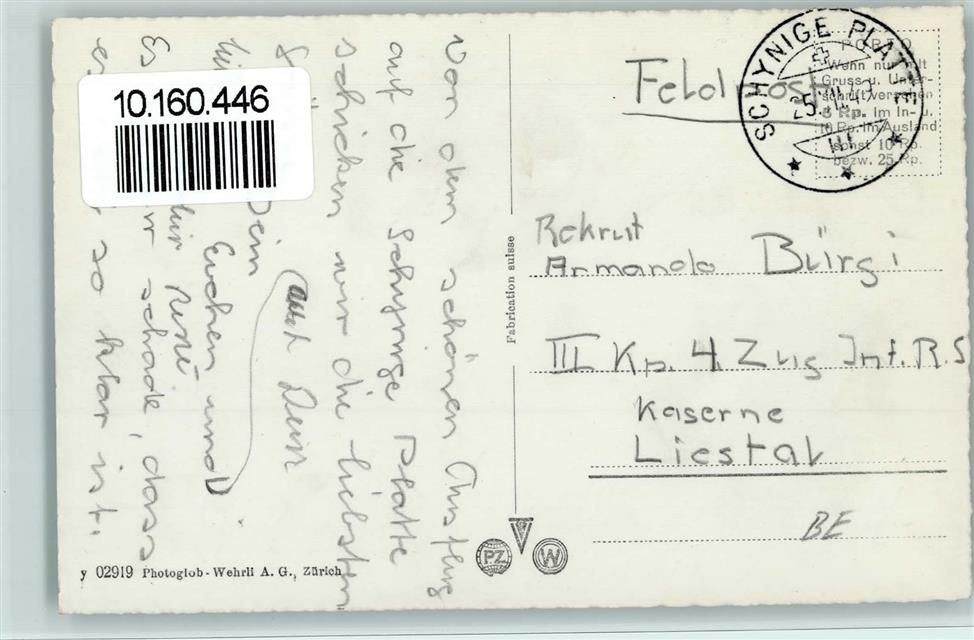 10.160.446
Von dem schönen Ausflug
auf die Schynige Platte
schicken wir die liebsten
Dein
Euchen und
auch Dein
Es schade, dass
so klar ist.
Feldpost
SCHYNIGE PLATTE
PORTO
Wenn nur mit
Gruss u. Unter-
schrift versehen
Rp. Im In- u.
10 Rp. Im Ausland
sonst 10 Rp.
bezw. 25 Rp.
Rekrut
Armando Bürgi
III Kp. 4. Zug Inf. R.S
Kaserne
Liestal
BE
Fabrication suisse
PZ W
y 02919 Photoglob-Wehrli A. G., Zürich